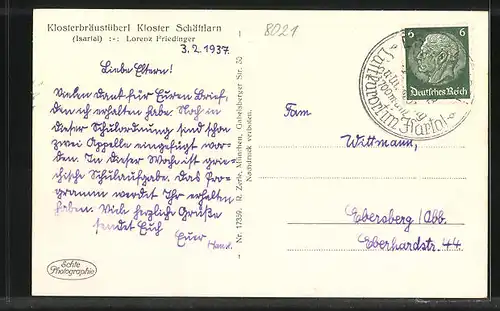 Klosterbräustüberl Kloster Schäftlarn
(Isartal) :-: Lorenz Friedinger
8021
3.2.1937
Liebe Eltern!
Vielen Dank für Euren Brief,
den ich erhalten habe. Noch in
dieser Schulordnung sind schon
zwei Appelle eingefügt wor-
den. In dieser Woche ist grie-
chische Schulaufgabe. Das Pro-
gramm werdet Ihr erhalten
haben. Viele herzliche Grüße
sendet Euch
Euer
Hans.
Echte
Photographie
Nr. 17339. R. Zerle, München, Gabelsberger Str. 52
Nachdruck verboten.
6 6
Deutsches Reich
Luftkurort im Isartal
Fam
Wittmann,
Ebersberg/Obb.
Eberhardstr. 44